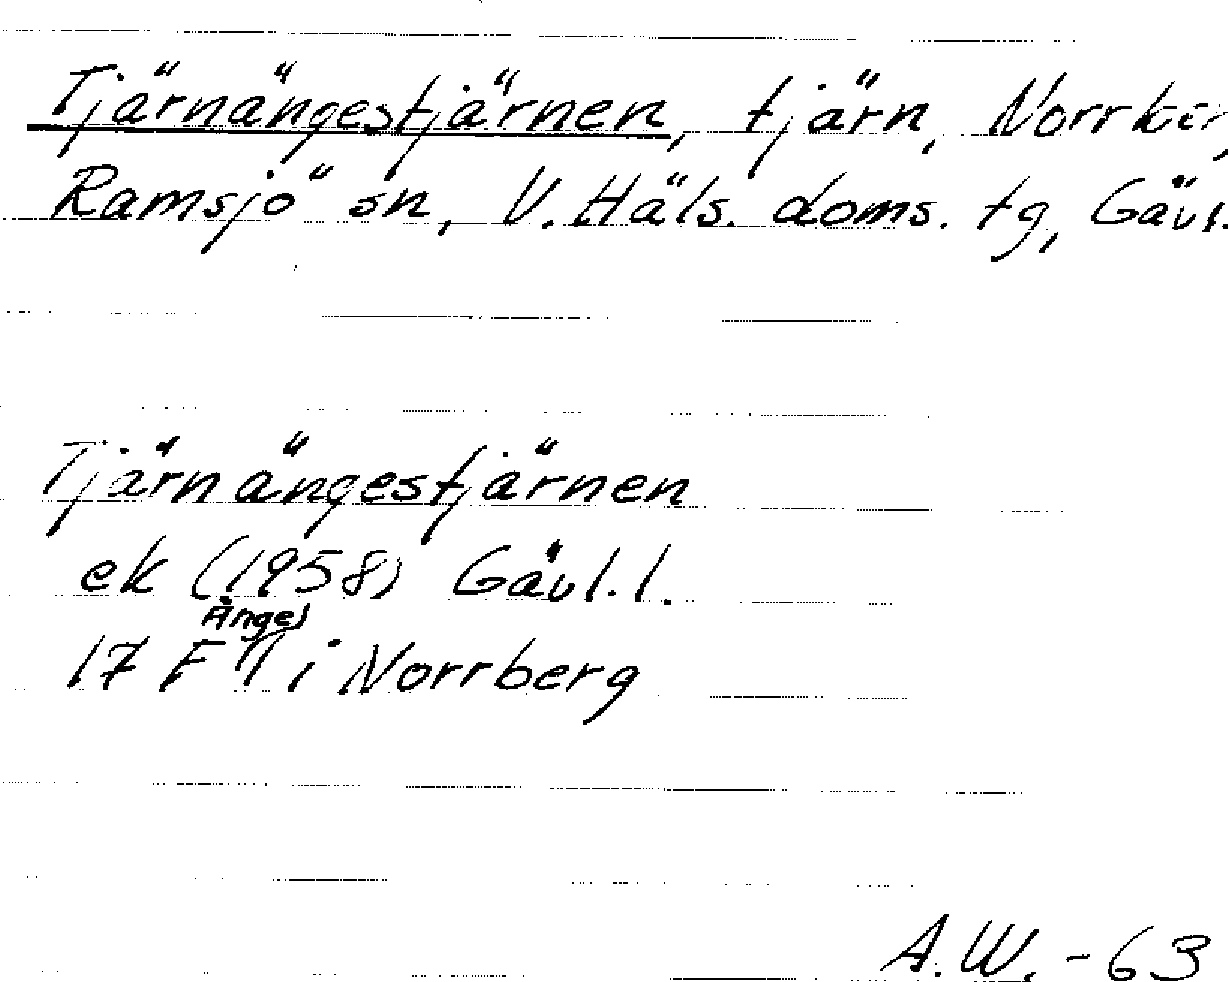 Tjärnängestjärnen, tjärn,
Ramsjö sn, V. Häls. doms. tg, Gävl.
Tjärnängestjärnen
ek (1958) Gävl. l.
Änge)
17 F i Norrberg
A.W. -63